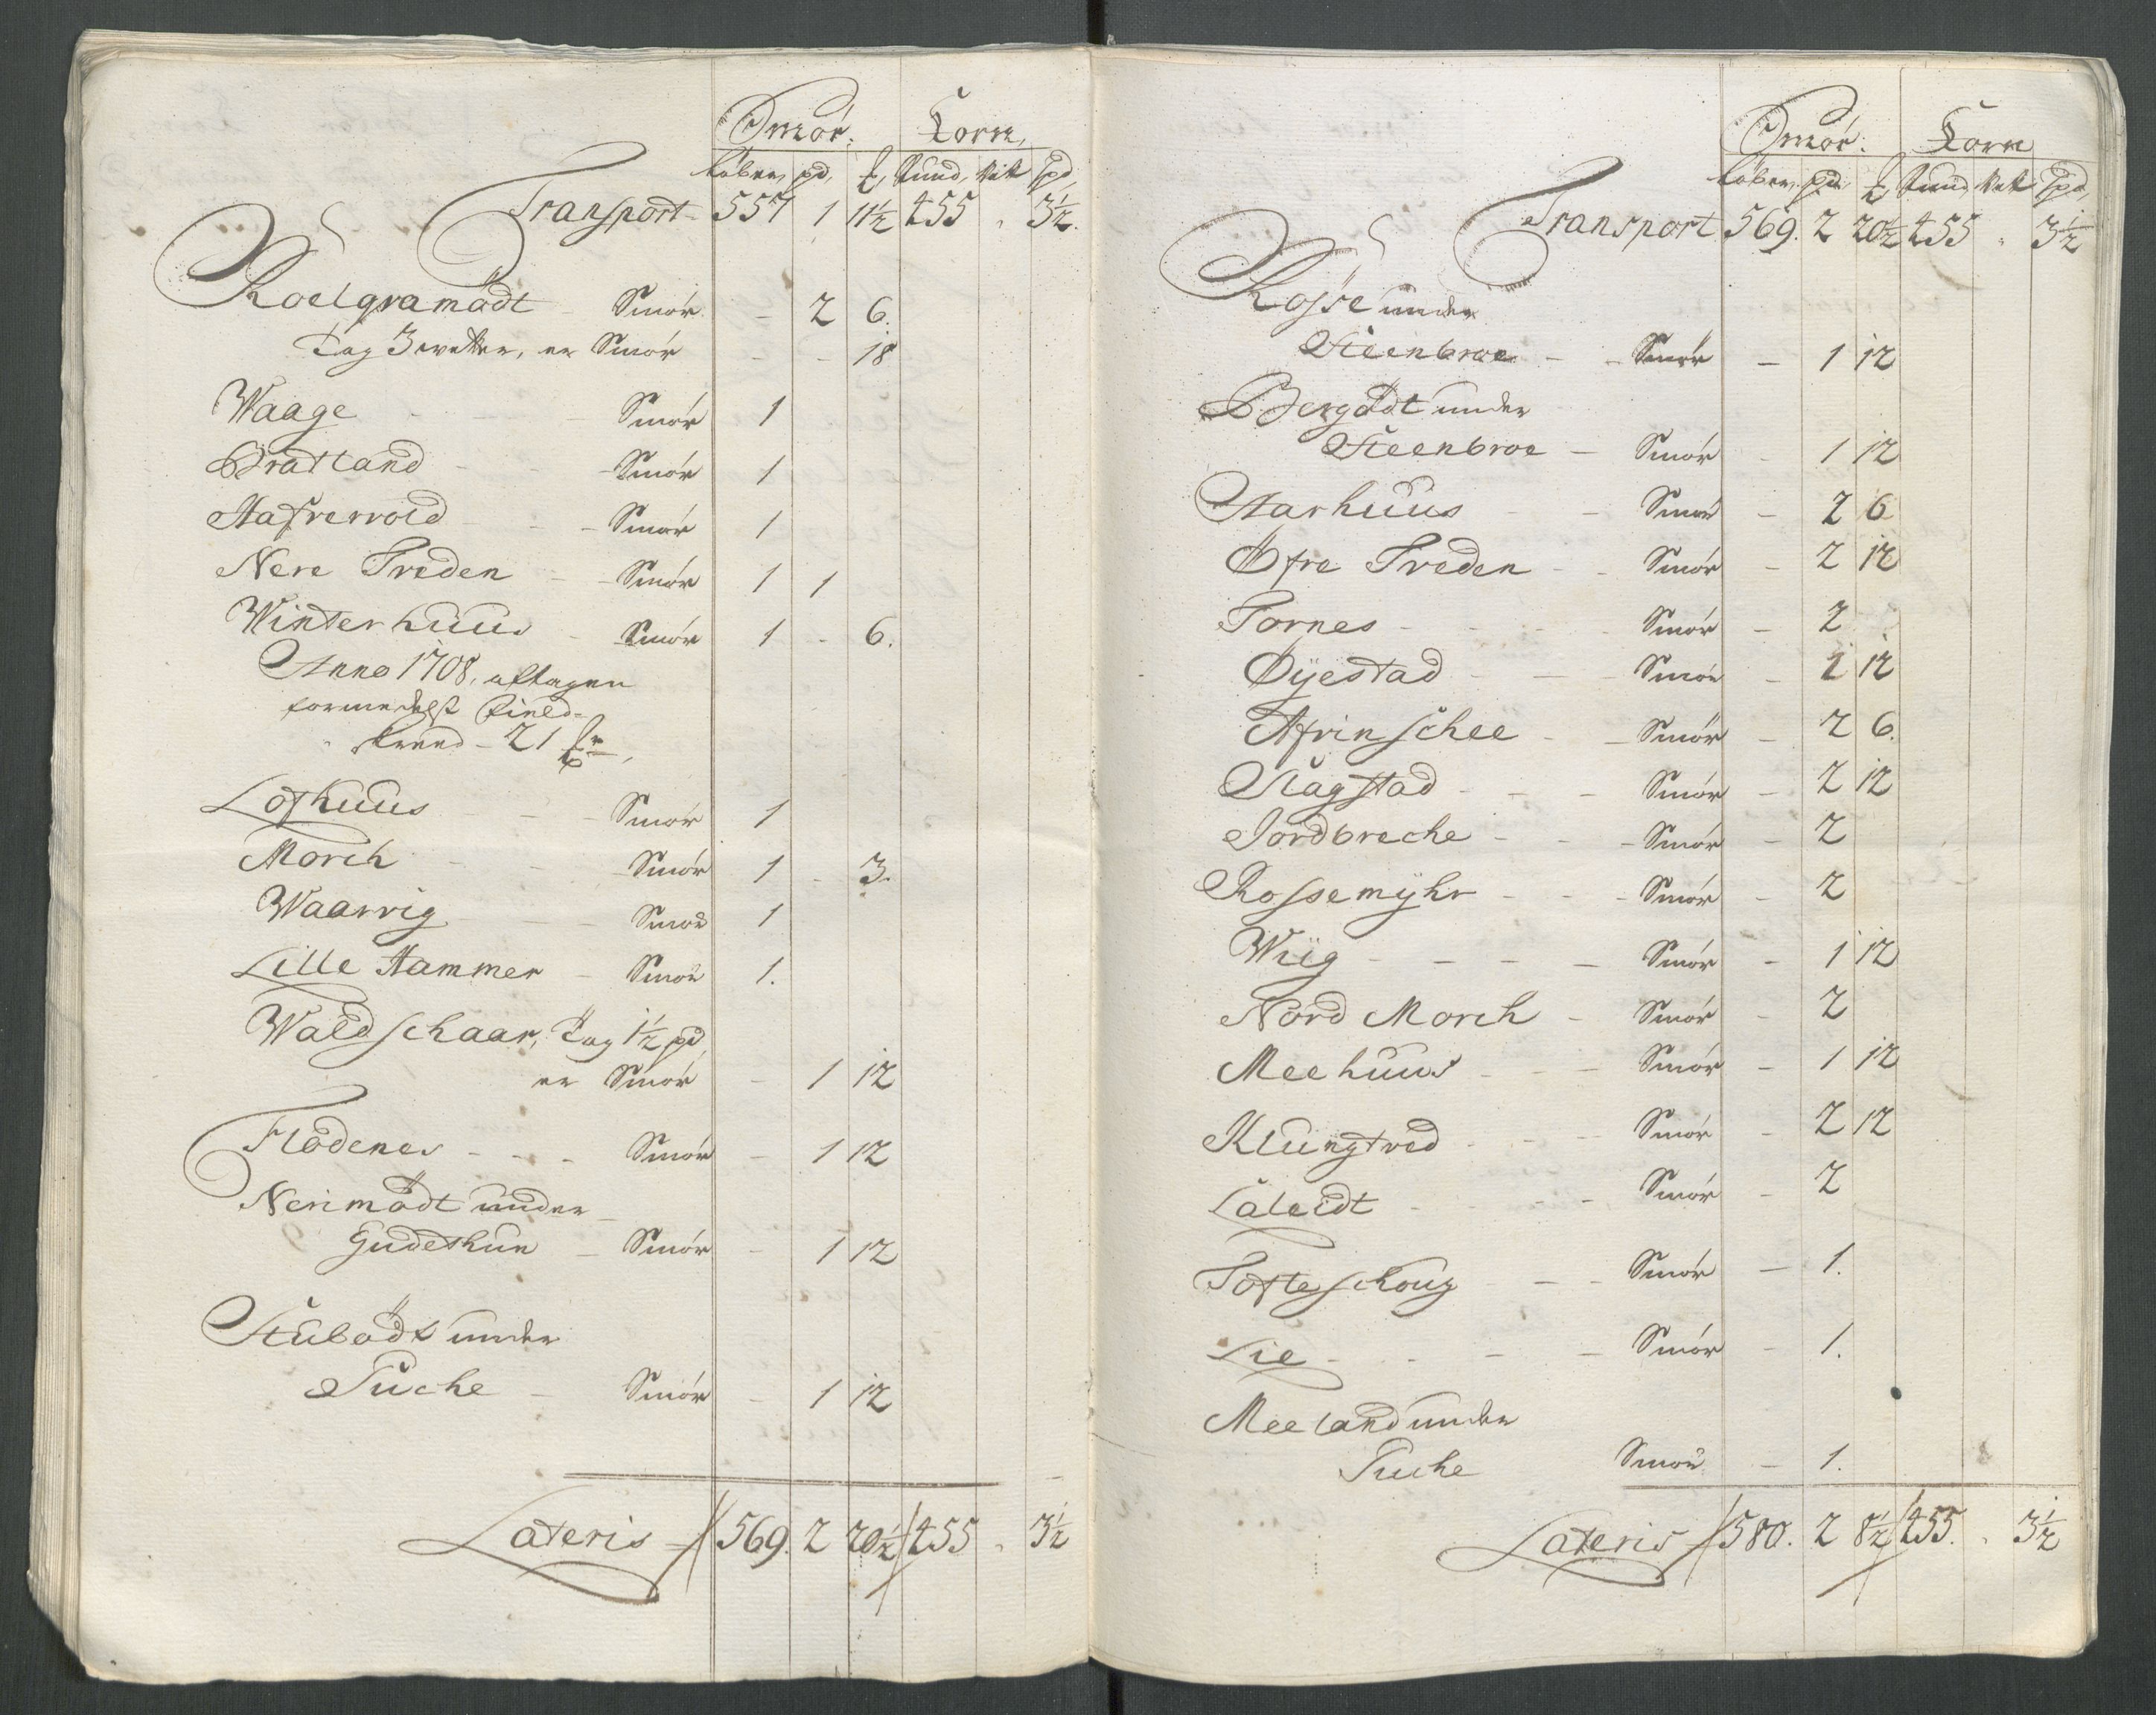 Smör. Korn,
Löber, pd, ℔, Tund, Vett, Spd,
Transport 557 1 11½ 455 " 3½.
Roelgramödt - Smör - 2 6.
Tag 3 wetter, er Smör - - 18
Waage - Smör 1
Bratland - Smör 1
Hafrevold - - Smör 1
Nere Treden - Smör 1 1
Winterhuus - Smör 1 - 6.
Anno 1708, aftagen
formedelst
- 21 ℔,
Lothuus - - Smör 1
Morch - - Smör 1 - 3.
Waarvig - - Smör 1
Lille Hammer - Smör 1.
Waldschaar, Tag 1½ pd
er Smör - 1 12
Flödenes - - - Smör - 1 12
Nerimödt under
Gudethun - Smör - 1 12
Stubödt under
Tuche - Smör - 1 12
Lateris 569. 2 20½ 455 " 3½
Smör. Korn
Löber, pd, ℔, Tund, Vett, Spd,
Transport 569. 2 20½ 455 " 3½
Rosse under
Steenbroe - - Smör - 1 12
Bergödt under
Steenbroe - Smör - 1 12
Aarhuus - - Smör - 2 6
Öfre Treden - - Smör - 2 12
Tornes - - - - Smör - 2
Öyestad - - - Smör - 1 12
Afrinschee - - Smör - 2 6.
Stagstad - - - Smör - 2 12
Jordbreche - - - Smör - 2
Rossemyhr - - - Smör - 2
Wiig - - - - Smör - 1 12
Nord Morch - Smör - 2
Meehuus - - - Smör - 1 12
Klungtved - - - Smör - 2 12
Laleidt - - - - Smör - 2
Tofteschoug - - - Smör - 1.
Lie - - - - Smör - 1.
Meeland under
Tuche Smör - 1.
Lateris 580. 2 8½ 455. " 3½